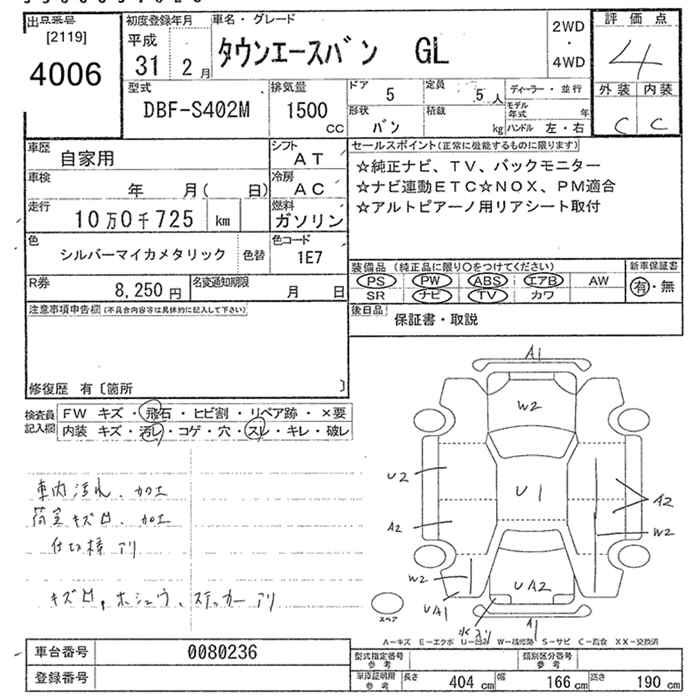 出品番号
[2119]
4006
初度登録年月
平成
31 2 月
車名・グレード
タウンエースバン GL
2WD
・
4WD
評価点
4
外装 内装
C C
型式
DBF-S402M
排気量
1500
CC
ドア 5
定員 5 人
ディーラー・並行
形状 バン
積載 kg
モデル年式 年
ハンドル 左・右
車歴
自家用
シフト
AT
車検
年 月( 日)
冷房
AC
走行
10万0千725 km
燃料
ガソリン
色
シルバーマイカメタリック
色替
色コード
1E7
R券
8,250 円
名変通知期限
月 日
セールスポイント(正常に機能するものに限ります)
☆純正ナビ、TV、バックモニター
☆ナビ連動ETC☆NOX、PM適合
☆アルトピアーノ用リアシート取付
装備品 (純正品に限り○をつけてください)
新車保証書
PS PW ABS エアB AW
SR ナビ TV カワ
有・無
後日品
保証書・取説
注意事項申告欄(不具合内容等は具体的に記入して下さい)
修復歴 有〔箇所 〕
検査員
記入欄
FW キズ・飛石・ヒビ割・リペア跡・×要
内装 キズ・汚レ・コゲ・穴・スレ・キレ・破レ
車内汚れ、加工
荷室キズ凹、加工
仕切棒アリ
キズ凹、ホシュウ、ステッカーアリ
A1
W2
U2
U1
A2
A2
W2
W2
UA1
UA2
A1
スペア
A-キズ E-エクボ U-凹み W-補修跡 S-サビ C-腐食 XX-交換済
車台番号
0080236
登録番号
型式指定番号
参考
類別区分番号
参考
車検証明細
参考
長さ 404 cm
幅 166 cm
高さ 190 cm